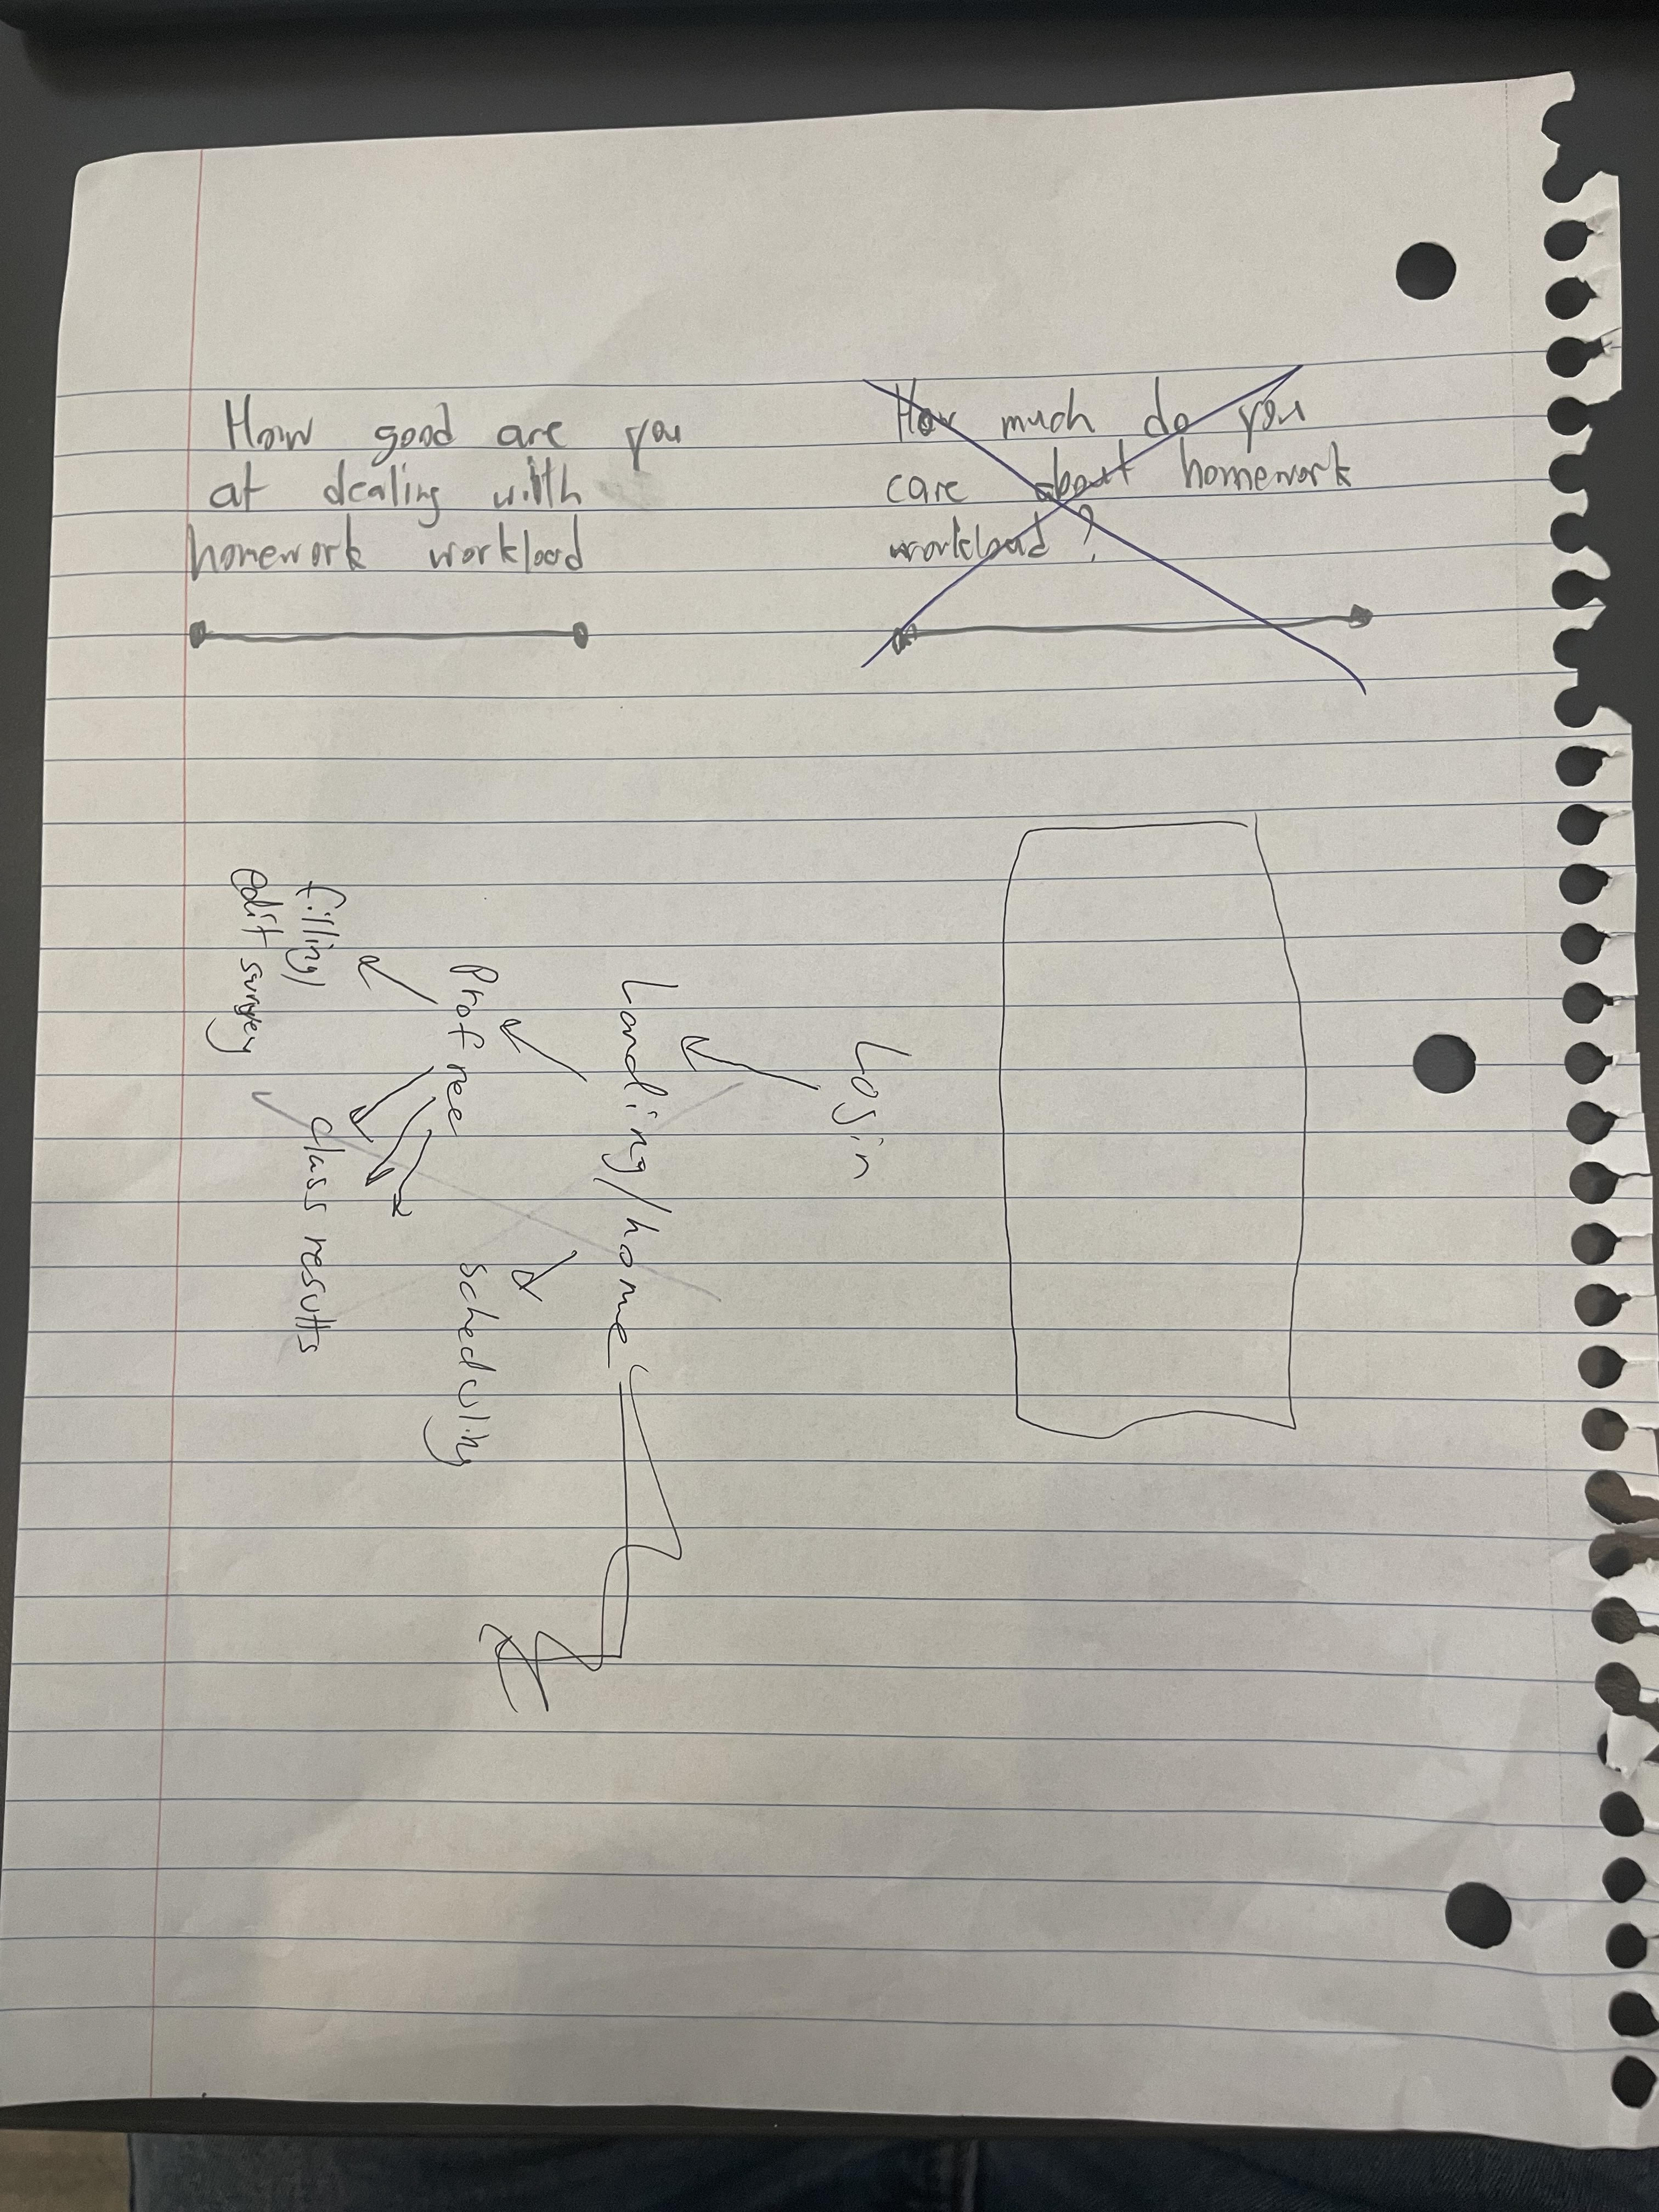 How good are you
at dealing with
homework workload
How much do you
care about homework
workload?
Login
Landing/home
Prof rec
scheduling
filling/
edit survey
class results